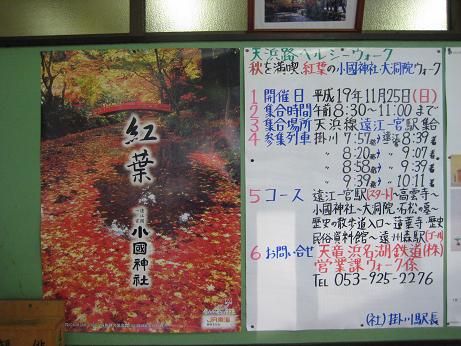 紅葉
小國神社
JR東海
天浜路ヘルシーウォーク
秋を満喫 紅葉の小國神社・大洞院ウォーク
1 開催日 平成19年11月25日(日)
2 集合時間 午前8:30～11:00まで
3 集合場所 天浜線遠江一宮駅集合
4 参集列車 掛川 7:57発→遠江一宮 8:39着
〃 8:20発→ 〃 9:07着
〃 8:58発→ 〃 9:39着
〃 9:39発→ 〃 10:11着
5 コース 遠江一宮駅(スタート)～高雲寺～
小國神社～大洞院 石松の墓～
歴史の散歩道入口～蓮華寺 歴史
民俗資料館～遠州森駅(ゴール)
6 お問い合せ 天竜浜名湖鉄道(株)
営業課ウォーク係
TEL 053-925-2276
(社)掛川駅長